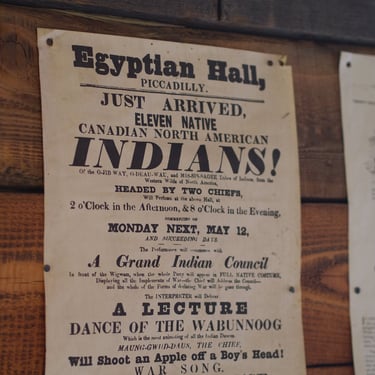 Egyptian Hall,
PICCADILLY.
JUST ARRIVED,
ELEVEN NATIVE
CANADIAN NORTH AMERICAN
INDIANS!
Of the O-JIB-WAY, O-DEAU-WAU, and MIS-SIS-SAGEE Tribes of Indians, from the
Western Wilds of North America,
HEADED BY TWO CHIEFS,
Will Perform at the above Hall, at
2 o'Clock in the Afternoon, & 8 o'Clock in the Evening,
COMMENCING ON
MONDAY NEXT, MAY 12,
AND SUCCEEDING DAYS
The Performances will commence with
A Grand Indian Council
In front of the Wigwam, when the whole Party will appear in FULL NATIVE COSTUME,
Displaying all the Implements of War—the Chief will Address the Council—
and the whole of the Forms of declaring War will be gone through.
The INTERPRETER will Deliver
A LECTURE
DANCE OF THE WABUNNOOG
Which is the most animating of all the Indian Dances.
MAUNG-GWUD-DAUS, THE CHIEF,
Will Shoot an Apple off a Boy's Head!
WAR SONG.